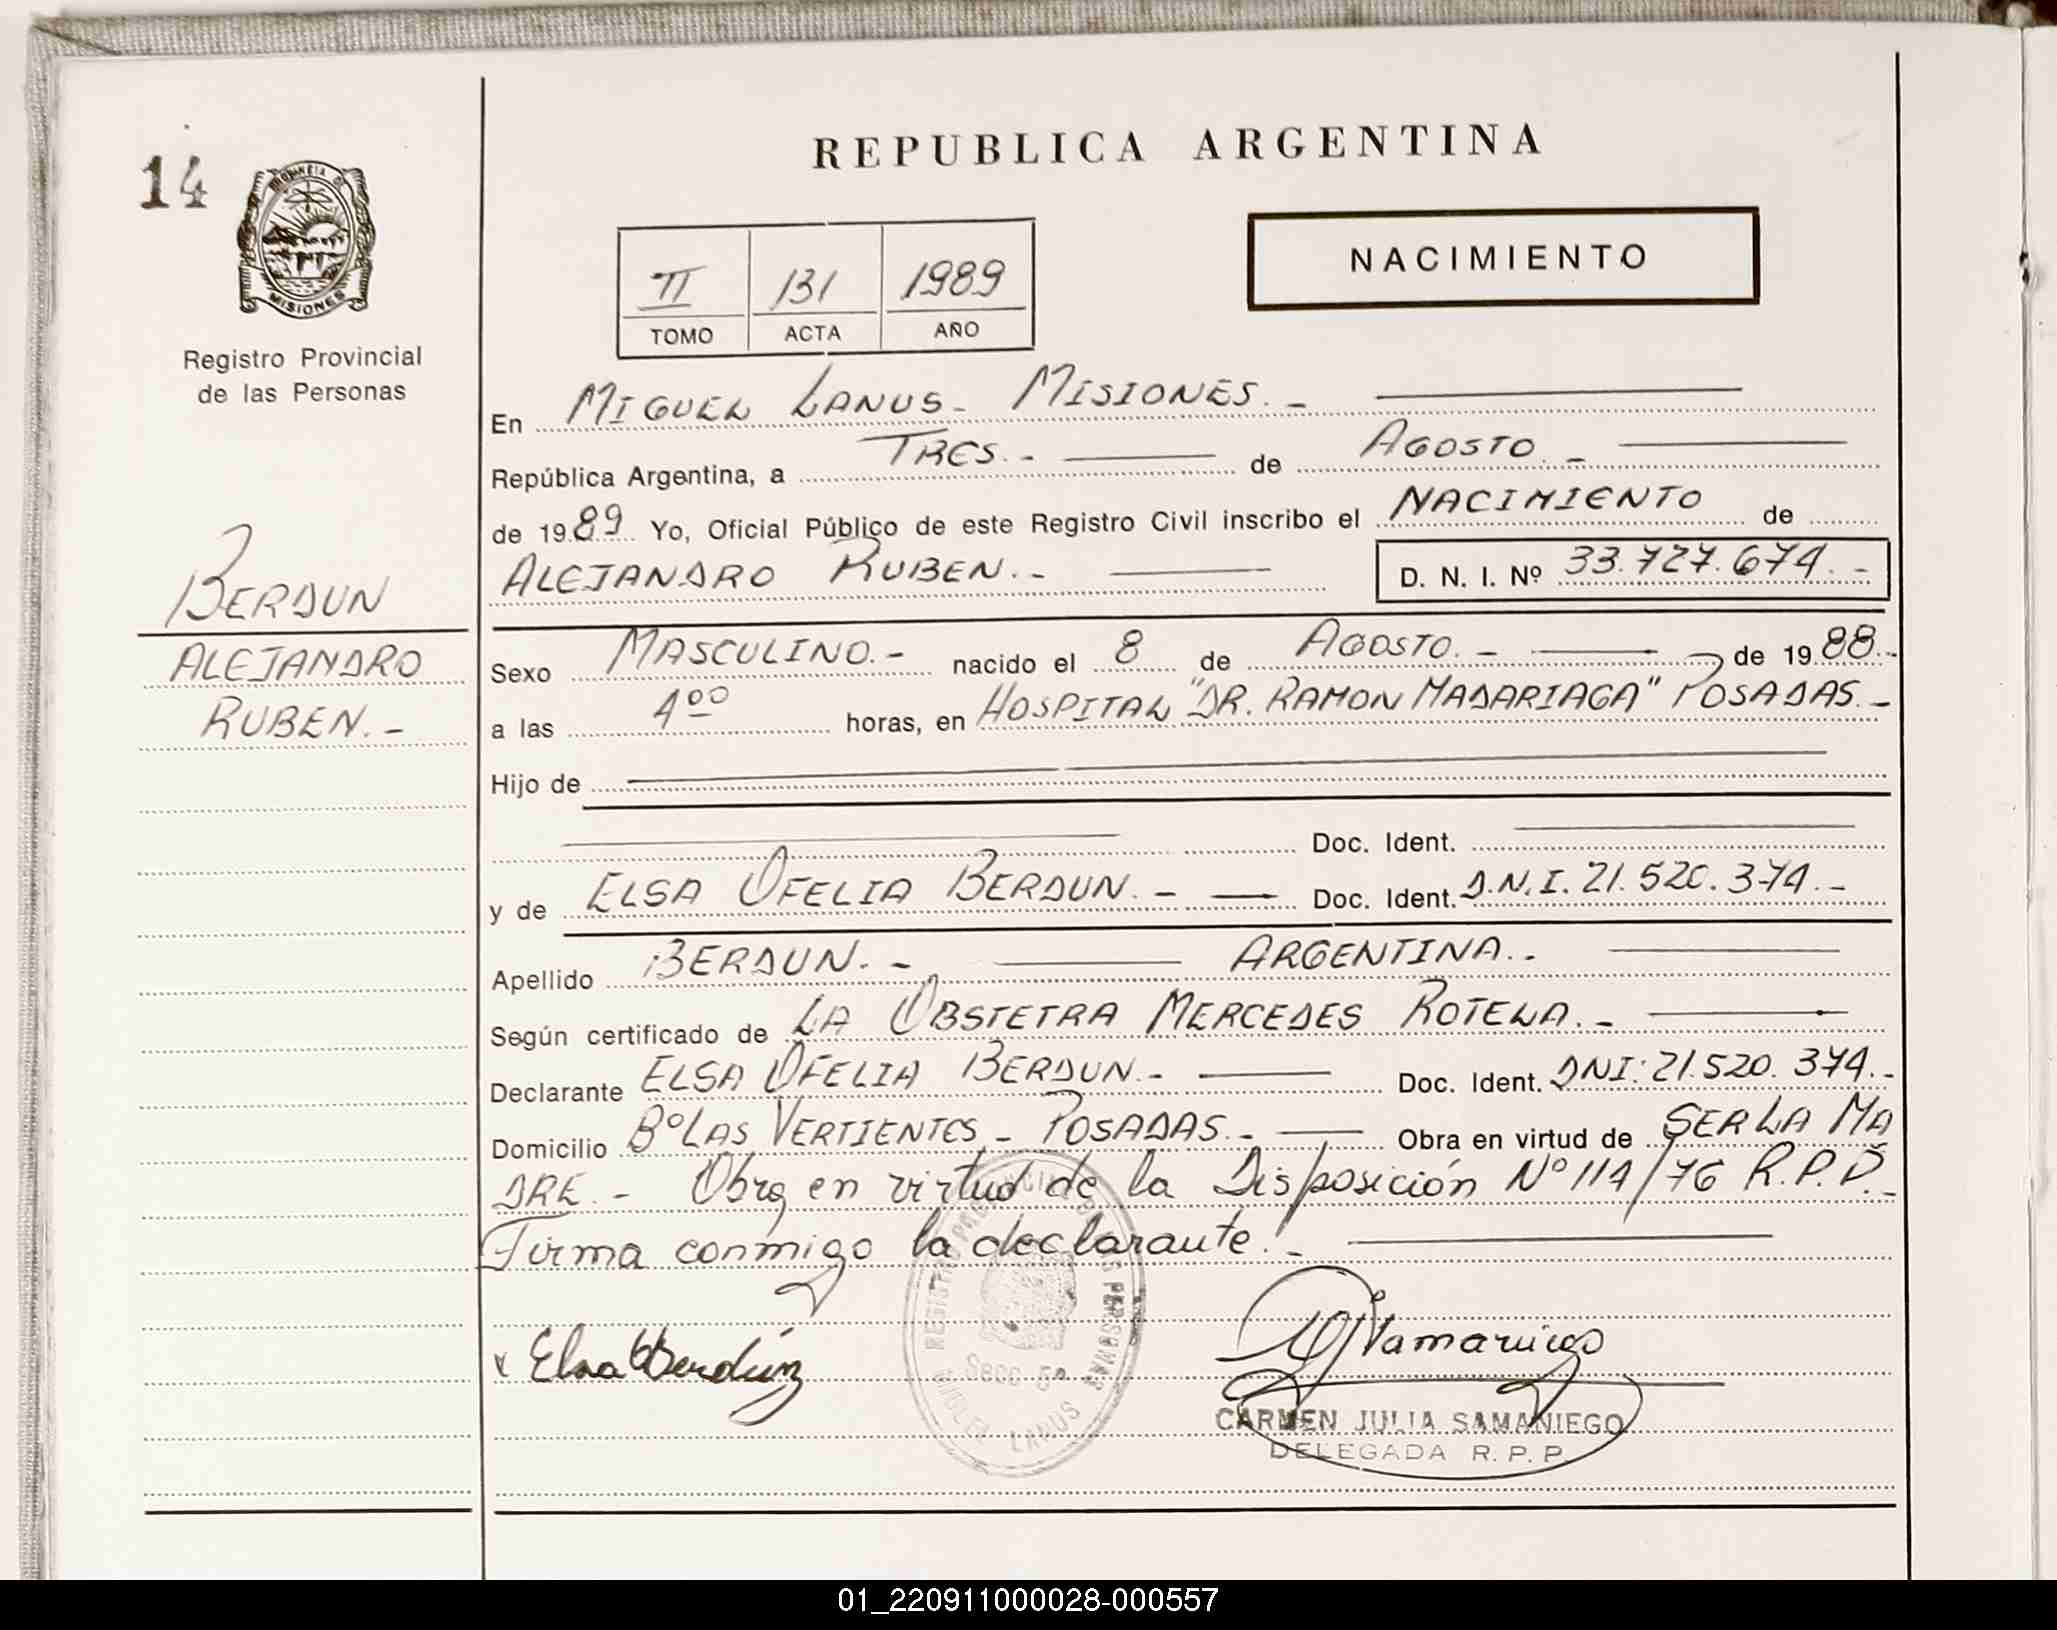 14
PROVINCIA DE
MISIONES
Registro Provincial
de las Personas
BERDUN
ALEJANDRO
RUBEN.-
REPUBLICA ARGENTINA
II 131 1989
TOMO ACTA AÑO
NACIMIENTO
En MIGUEL LANUS- MISIONES.-
República Argentina, a TRES.- de AGOSTO.-
de 1989 Yo, Oficial Público de este Registro Civil inscribo el NACIMIENTO de
ALEJANDRO RUBEN.- D. N. I. Nº 33.727.674.-
Sexo MASCULINO.- nacido el 8 de AGOSTO.- de 1988.-
a las 4 00 horas, en HOSPITAL "DR. RAMON MADARIAGA" POSADAS.-
Hijo de
Doc. Ident.
y de ELSA OFELIA BERDUN.- Doc. Ident. D.N.I. 21.520.374.-
Apellido BERDUN.- ARGENTINA.-
Según certificado de LA OBSTETRA MERCEDES ROTELA.-
Declarante ELSA OFELIA BERDUN.- Doc. Ident. DNI: 21.520.374.-
Domicilio Bº LAS VERTIENTES - POSADAS.- Obra en virtud de SER LA MA
DRE.- Obra en virtud de la Disposición Nº 114/76 R.P.P.-
Firma conmigo la declarante.-
x Elsa O Berdún
REGISTRO PROVINCIAL DE LAS PERSONAS
SECC. 5ª
MIGUEL LANUS
CARMEN JULIA SAMANIEGO
DELEGADA R. P. P.
01_220911000028-000557